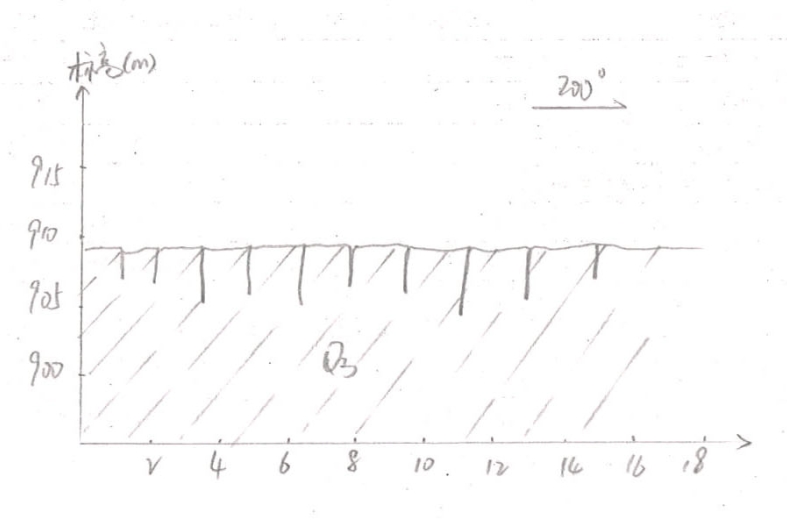 标高(m)
200°
915
910
905
900
Q3
2 4 6 8 10 12 14 16 18